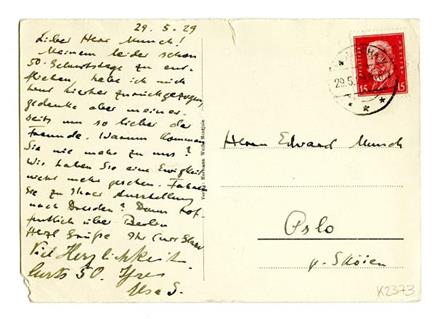 29. 5. 29
Lieber Herr Munch!
Meinem leider schon
50. Geburtstage zu ent-
fliehen, habe ich mich
kurz hierher zurückgezogen,
gedenke aber meiner-
seits um so lieber der
Freunde. Warum kommen
Sie nie mehr zu uns?
Wir haben Sie eine Ewigkeit
nicht mehr gesehen. Fahren
Sie zu Ihrer Ausstellung
nach Dresden? Dann hof-
fentlich über Berlin
Herzl Grüße Ihr Curt Glaser
Viel Herzlichkeit
Curts 50. Ihre
Elsa G.
29.5.
15
15
Herrn Edvard Munch
Oslo
p. Skøien
K2373